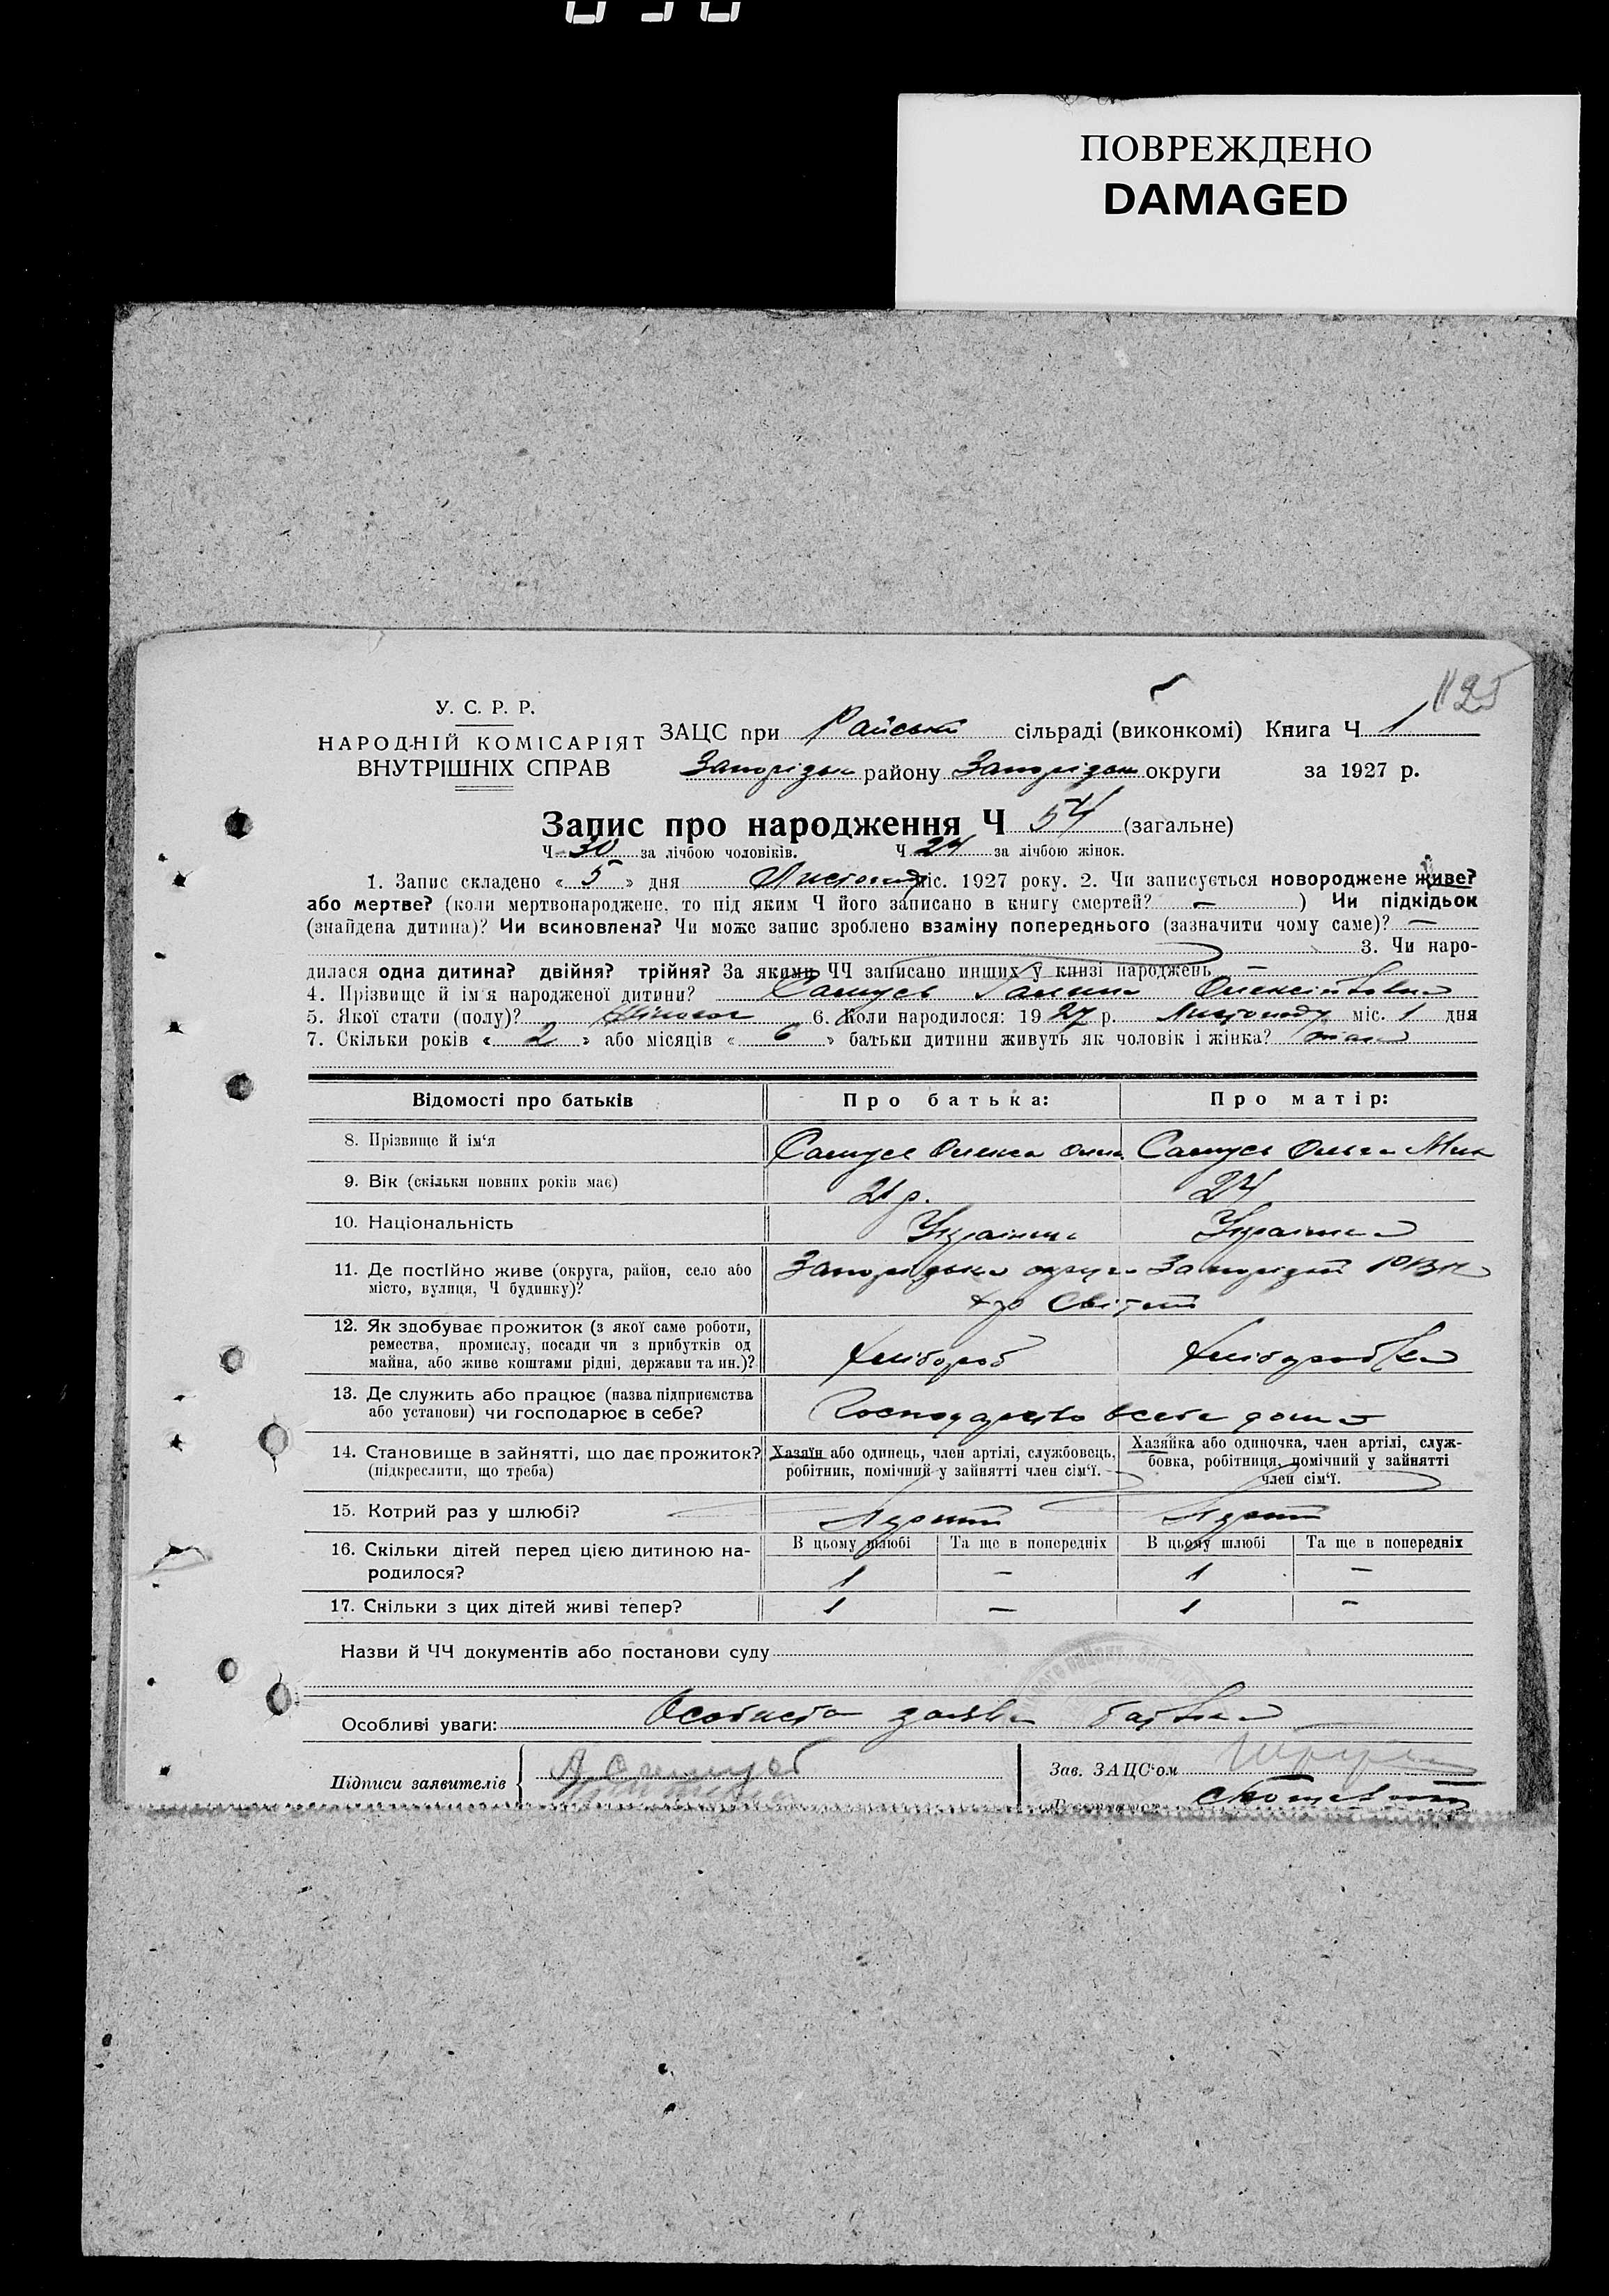 ПОВРЕЖДЕНО
DAMAGED
125
У. С. Р. Р.
НАРОДНІЙ КОМІСАРІЯТ
ВНУТРІШНІХ СПРАВ
ЗАЦС при Райській сільраді (виконкомі) Книга Ч 1
Запорізьк району Запорізьк округи за 1927 р.
Запис про народження Ч 54 (загальне)
Ч 30 за лічбою чоловіків. Ч 24 за лічбою жінок.
1. Запис складено « 5 » дня Листопад міс. 1927 року. 2. Чи записується новороджене живе?
або мертве? (коли мертвонароджене, то під яким Ч його записано в книгу смертей? — ) Чи підкідьок
(знайдена дитина)? Чи всиновлена? Чи може запис зроблено взаміну попереднього (зазначити чому саме)? —
3. Чи наро-
дилася одна дитина? двійня? трійня? За якими ЧЧ записано инших у книзі народжень —
4. Прізвище й ім'я народженої дитини? Самусь Галина Олексіївна
5. Якої стати (полу)? Жіночої 6. Коли народилося: 1927 р. Листопаду міс. 1 дня
7. Скільки років « 2 » або місяців « 6 » батьки дитини живуть як чоловік і жінка?
Відомості про батьків Про батька: Про матір:
8. Прізвище й ім'я Самусь Олекса Самусь Ольга Мик
9. Вік (скільки повних років має) 21 р. 24
10. Національність Українець Українка
11. Де постійно живе (округа, район, село або
місто, вулиця, Ч будинку)? Запорізька округа Запорізький
12. Як здобуває прожиток (з якої саме роботи,
ремества, промислу, посади чи з прибутків од
майна, або живе коштами рідні, держави та ин.)? Хлібороб Хліборобка
13. Де служить або працює (назва підприємства
або установи) чи господарює в себе? Господарство всебе дома
14. Становище в зайнятті, що дає прожиток?
(підкреслити, що треба)
Хазяїн або одинець, член артілі, службовець,
робітник, помічний у зайнятті член сім'ї.
Хазяйка або одиночка, член артілі, служ-
бовка, робітниця, помічний у зайнятті
член сім'ї.
15. Котрий раз у шлюбі? Перший Перший
16. Скільки дітей перед цією дитиною на-
родилося?
В цьому шлюбі Та ще в попередніх В цьому шлюбі Та ще в попередніх
1 — 1 —
17. Скільки з цих дітей живі тепер? 1 — 1 —
Назви й ЧЧ документів або постанови суду
Особливі уваги: Особиста заява батька
Підписи заявителів А Самусь
Зав. ЗАЦС'ом